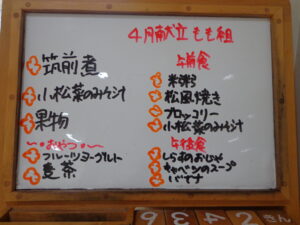 4月献立もも組
筑前煮
小松菜のみそ汁
果物
おやつ
フルーツヨーグルト
麦茶
午前食
米粥
松風焼き
ブロッコリー
小松菜のみそ汁
午後食
しらすのおじや
キャベツのスープ
バナナ